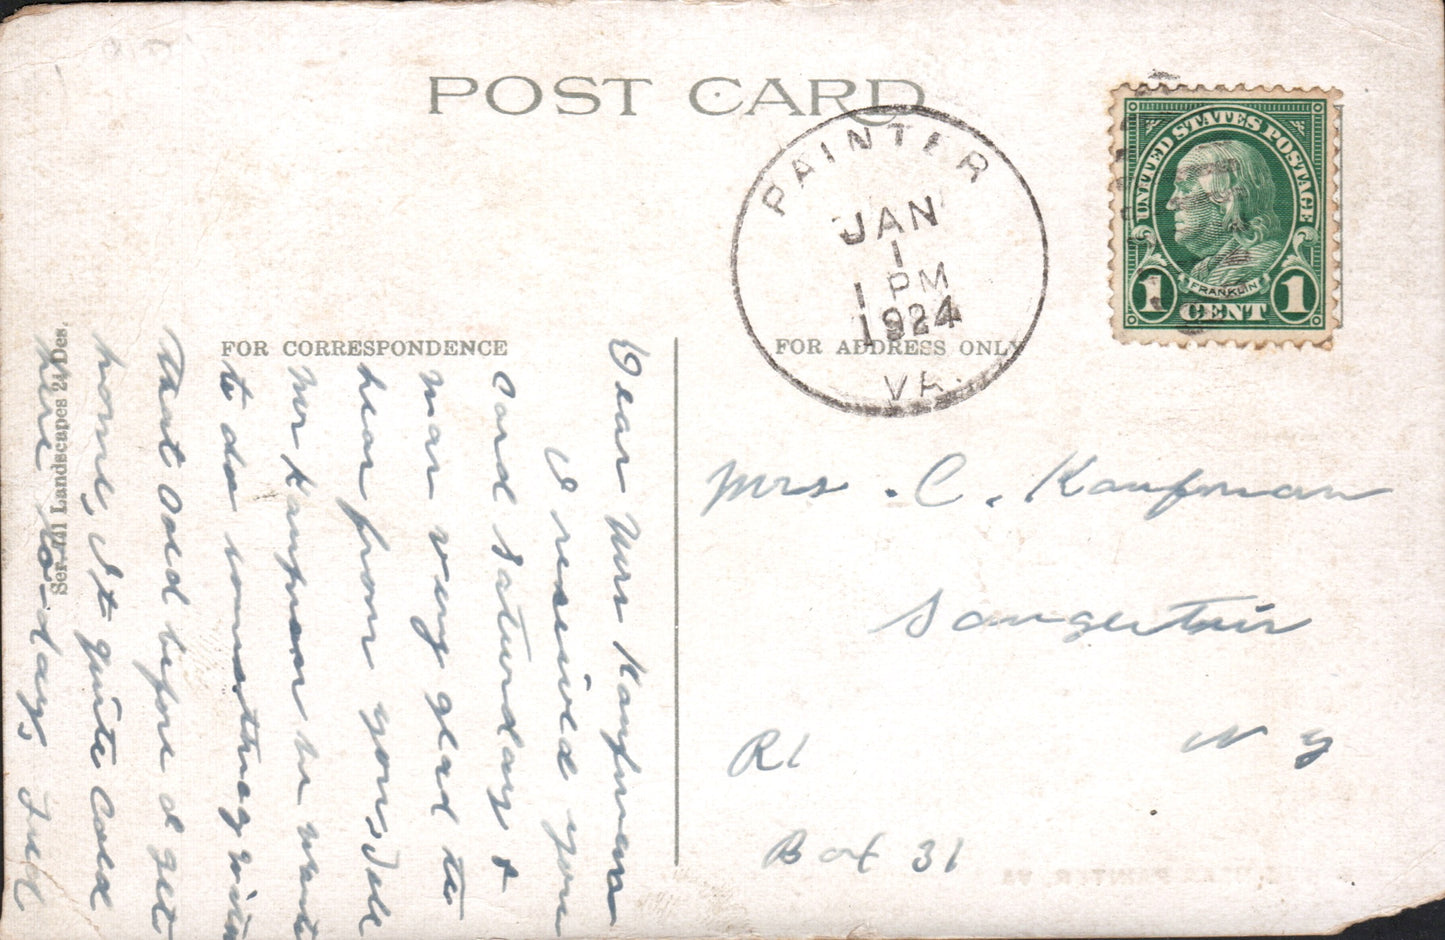 POST CARD
PAINTER
JAN
1
1 PM
1924
VA.
UNITED STATES POSTAGE
FRANKLIN
1 CENT 1
FOR CORRESPONDENCE
FOR ADDRESS ONLY
Ser. 441 Landscapes 24 Des.
Dear Mrs Kaufman
I reseived your
Card Saturday &
mar very glad to
hear from you, Tell
Mr Kaufman he want
to do something with
that Cold before I get
home, It quite Cold
here to-day,
Mrs. C. Kaufman
Saugerties
N Y
R1
Box 31